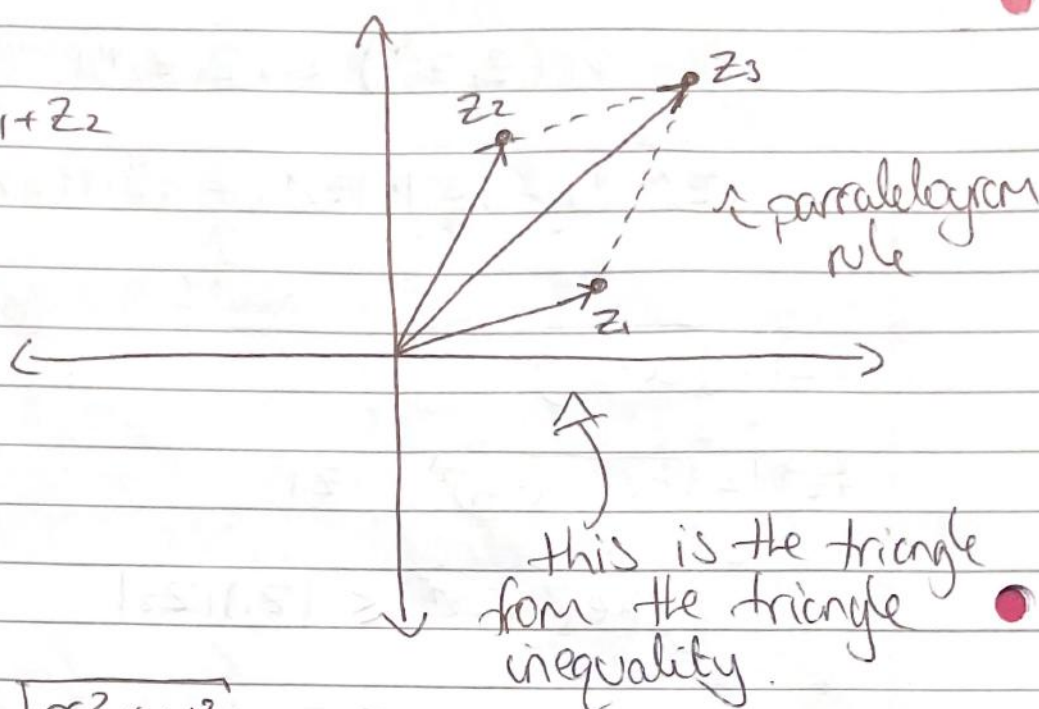 z3
z2
1+z2
↑ parralelogram
rule
z1
this is the triangle
from the triangle
inequality.